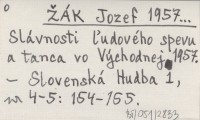 ŽÁK Jozef 1957...
Slávnosti ľudového spevu
a tanca vo Východnej 1957.
- Slovenská Hudba 1,
nr 4-5: 154-155.